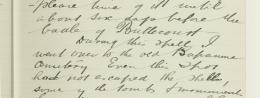 please time of it until
about six days before the
battle of Bullecourt
During this spell I
went over to the old Bapaume
Cemetery. Even this spot
had not escaped the shells,
some of the tombs & monuments